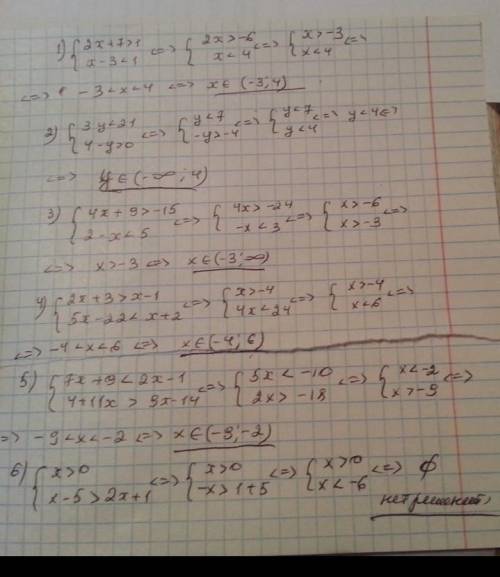 1) { 2x+7>1 x-3<1 <=> { 2x>-6 x<4 <=> { x>-3 x<4 <=>
<=> -3<x<4 <=> x∈(-3;4)
2) { 3y<21 4-y>0 <=> { y<7 -y>-4 <=> { y<7 y<4 <=> y<4 <=>
<=> y∈(-∞;4)
3) { 4x+9>-15 2-x<5 <=> { 4x>-24 -x<3 <=> { x>-6 x>-3 <=>
<=> x>-3 <=> x∈(-3;∞)
4) { 2x+3>x-1 5x-22<x+2 <=> { x>-4 4x<24 <=> { x>-4 x<6 <=>
<=> -4<x<6 <=> x∈(-4;6)
5) { 7x+9<2x-1 4+11x>9x-14 <=> { 5x<-10 2x>-18 <=> { x<-2 x>-9 <=>
=> -9<x<-2 <=> x∈(-9;-2)
6) { x>0 x-5>2x+1 <=> { x>0 -x>1+5 <=> { x>0 x<-6 <=> ∅
нет решений.